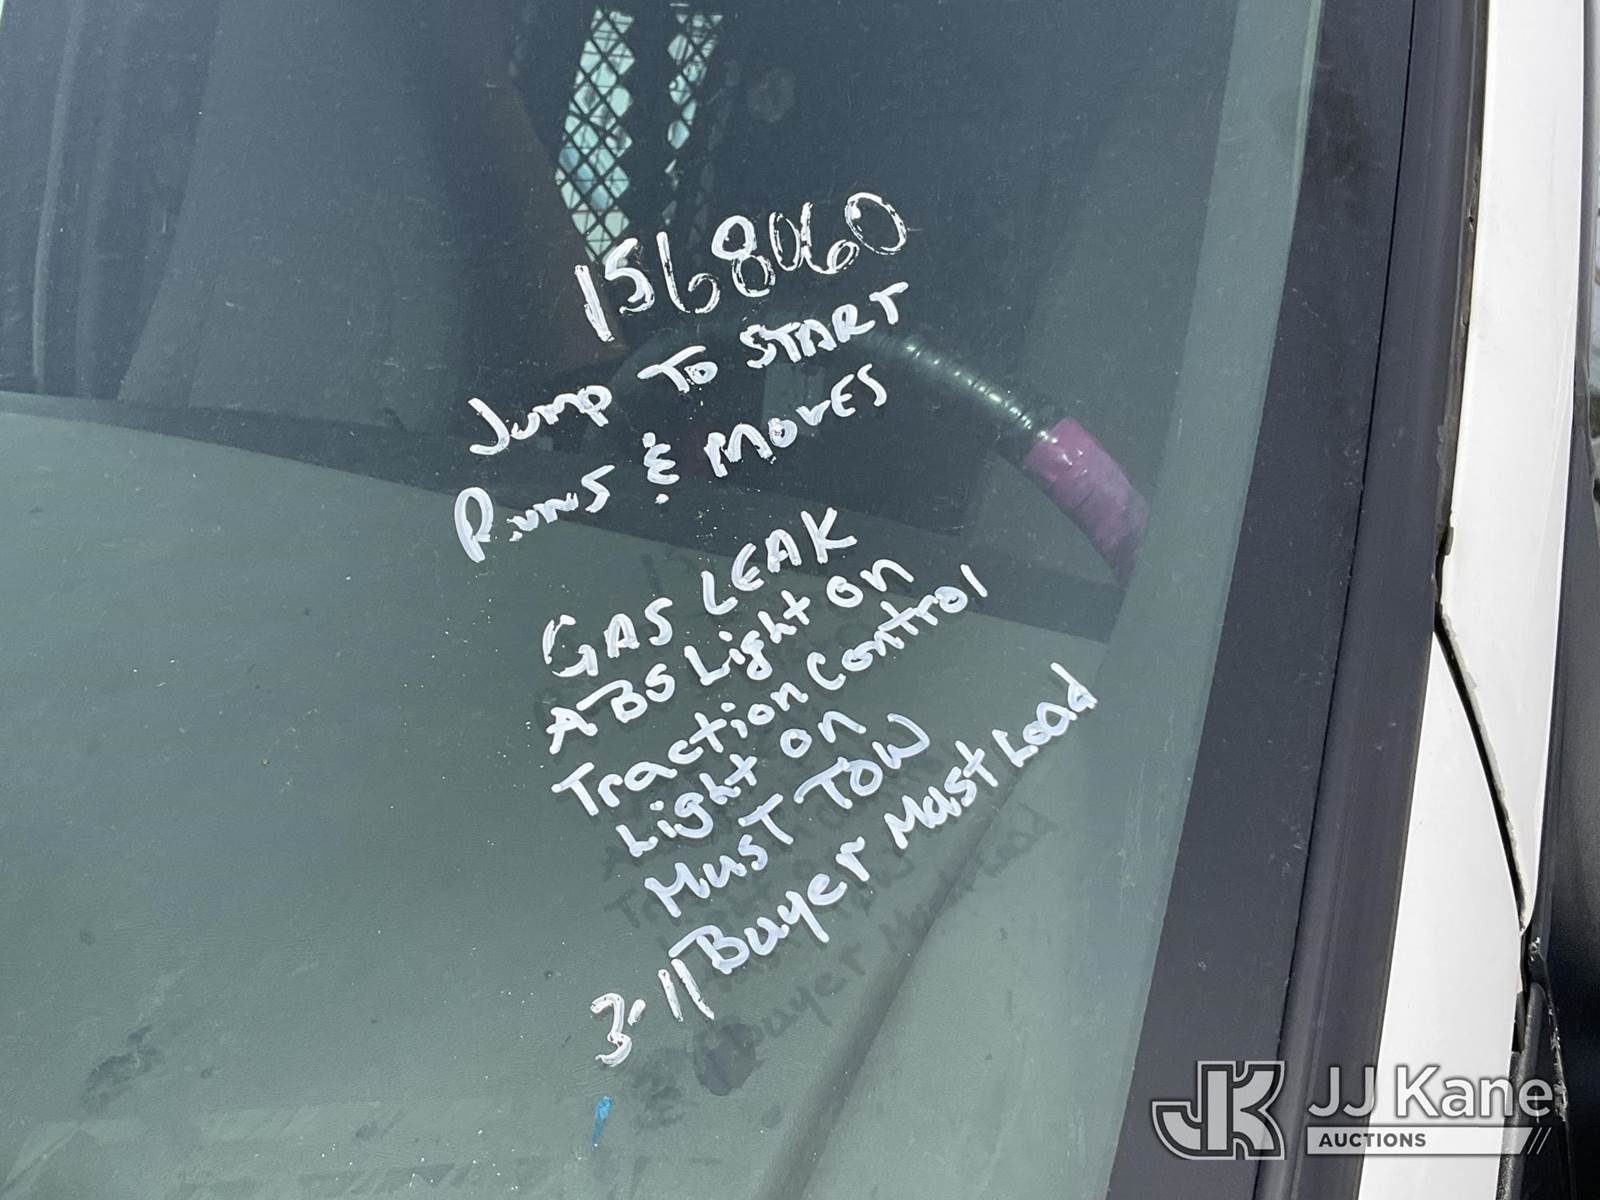 1568060
Jump To START
Runs & MOVES
GAS LEAK
ABS Light on
Traction Control
Light on
MUST TOW
Buyer Must Load
3-11
JK JJ Kane
AUCTIONS